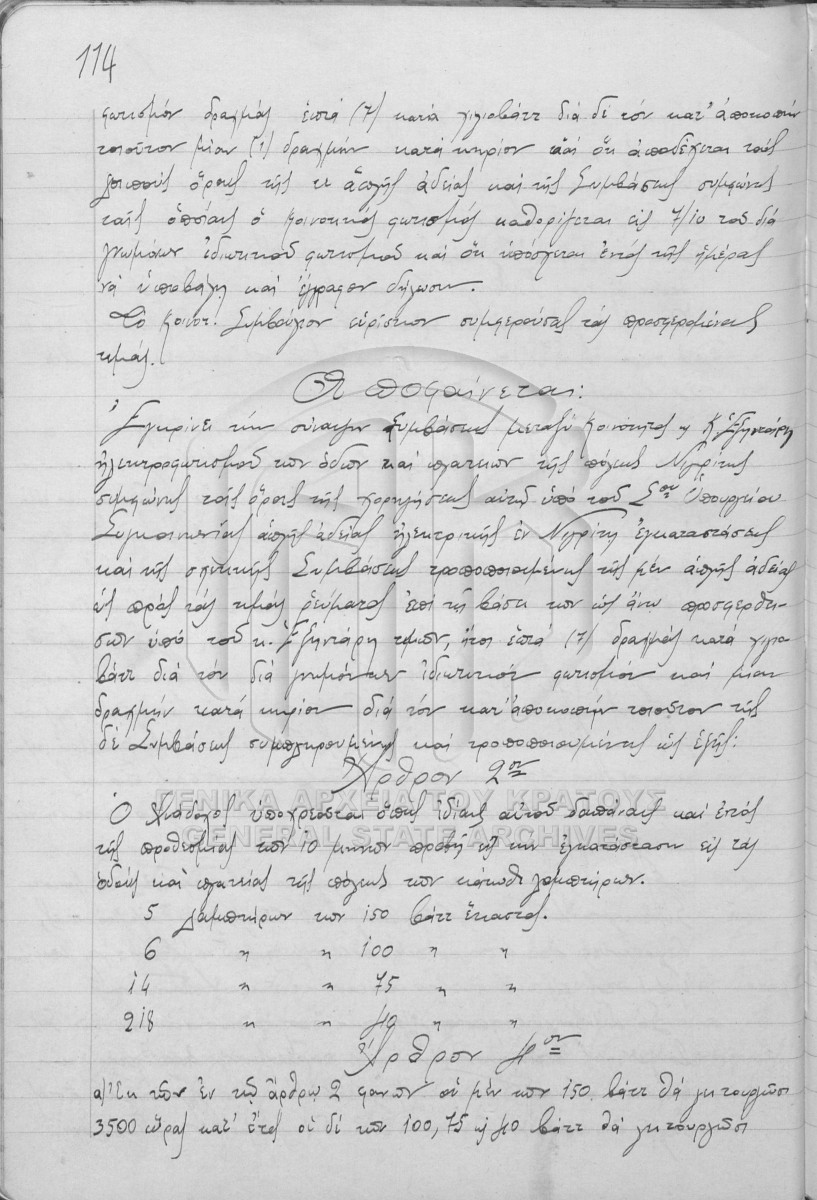 114
φωτισμόν δραχμάς ἑπτά (7) κατά χιλιοβάττ διά δέ τόν κατ' ἀποκοπήν
τοιοῦτον μίαν (1) δραχμήν κατά κηρίον καί ὅτι ἀποδέχεται τούς
λοιπούς ὅρους τῆς ἁπλῆς ἀδείας καί τῆς Συμβάσεως συμφώνως
ταῖς ὁποίαις ὁ κοινοτικός φωτισμός καθορίζεται εἰς 7/10 τοῦ διά
γνωμόνων ἰδιωτικοῦ φωτισμοῦ καί ὅτι ὑπόσχεται ἐντός τῆς ἡμέρας
νά ὑποβάλῃ καί ἔγγραφον δήλωσιν.
Τό Κοινοτ. Συμβούλιον εὑρίσκον συμφερούσας τάς προσφερομένας
τιμάς.
Ἀποφαίνεται:
Ἐγκρίνει τήν σύναψιν συμβάσεως μεταξύ Κοινότητος κ Κ. Ἐξηντάρη
ἠλεκτροφωτισμοῦ τῶν ὁδῶν καί πλατειῶν τῆς πόλεως Νιγρίτης
συμφώνως τοῖς ὅροις τῆς χορηγήσεως αὐτῷ ὑπό τοῦ Σου Ὑπουργείου
Συγκοινωνίας ἁπλῆς ἀδείας ἠλεκτρικῆς ἐν Νιγρίτῃ ἐγκαταστάσεως
καί τῆς σχετικῆς Συμβάσεως τροποποιουμένης τῆς μέν ἁπλῆς ἀδείας
ὡς πρός τάς τιμάς ρεύματος ἐπί τῇ βάσει τῶν ὡς ἄνω προσφερθει-
σῶν ὑπό τοῦ κ. Ἐξηντάρη τιμῶν, ἤτοι ἑπτά (7) δραχμάς κατά χιλιο-
βάττ διά τόν διά γνωμόνων ἰδιωτικόν φωτισμόν καί μίαν
δραχμήν κατά κηρίον διά τόν κατ' ἀποκοπήν τοιοῦτον τῆς
δέ Συμβάσεως συμπληρουμένης καί τροποποιουμένης ὡς ἑξῆς:
Ἄρθρον 2ον
Ὁ Ἀνάδοχος ὑποχρεοῦται ὅπως ἰδίαις αὐτοῦ δαπάναις καί ἐντός
τῆς προθεσμίας τῶν 10 μηνῶν προβῇ εἰς τήν ἐγκατάστασιν εἰς τάς
ὁδούς καί πλατείας τῆς πόλεως τῶν κάτωθι λαμπτήρων.
5 λαμπτήρων τῶν 150 βάττ ἕκαστος.
6 " " 100 " "
14 " " 75 " "
218 " " 40 " "
Ἄρθρον 4ον
α) Ἐκ τῶν ἐν τῷ ἄρθρῳ 2 φανῶν οἱ μέν τῶν 150 βάττ θά λειτουργῶσι
3500 ὥρας κατ' ἔτος οἱ δέ τῶν 100, 75 κ 40 βάττ θά λειτουργῶσι
ΓΕΝΙΚΑ ΑΡΧΕΙΑ ΤΟΥ ΚΡΑΤΟΥΣ
GENERAL STATE ARCHIVES